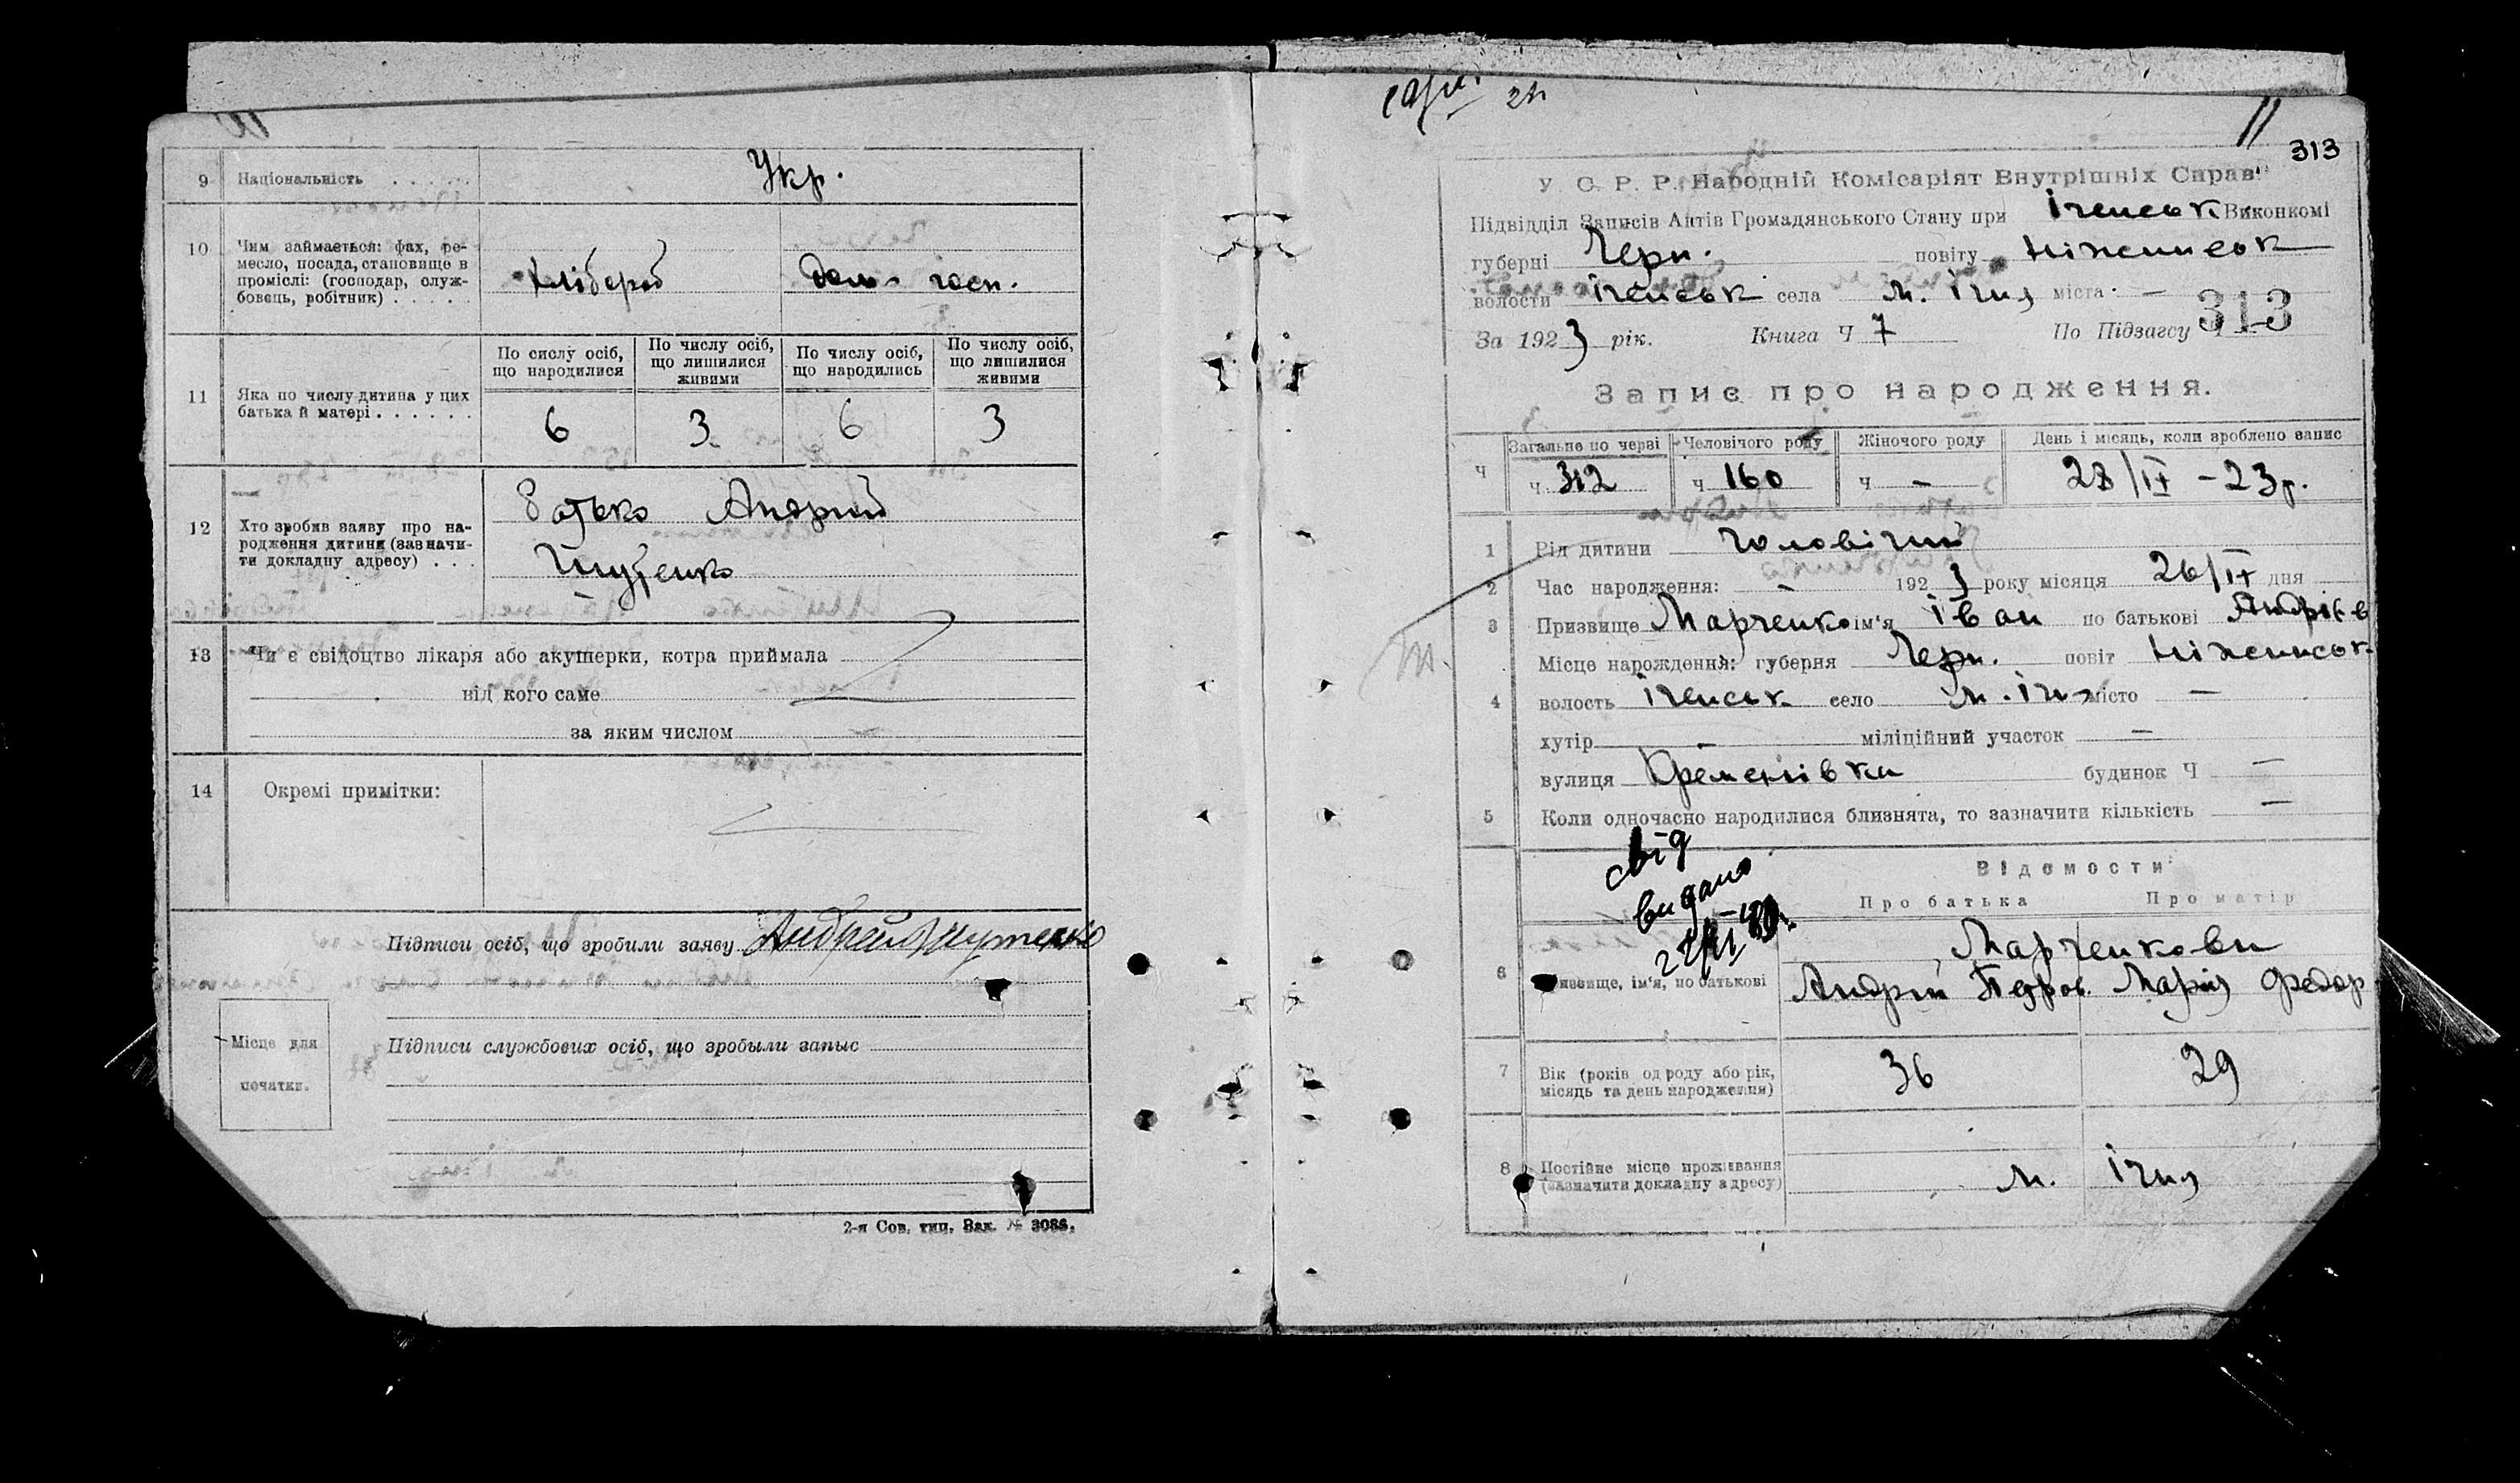 9 Національність . . . . . Укр.
10 Чим займається: фах, ре-
месло, посада, становище в
проміслі: (господар, служ-
бовець, робітник) . . . . . Хлібороб дом. госп.
11 Яка по числу дитина у цих
батька й матері . . . . . .
По сислу осіб,
що народилися
По числу осіб,
що лишилися
живими
По числу осіб,
що народились
По числу осіб,
що лишилися
живими
6 3 6 3
12 Хто зробив заяву про на-
родження дитини (зазначи-
ти докладну адресу) . . .
батько Андрий
13 Чи є свідоцтво лікаря або акушерки, котра приймала
від кого саме
за яким числом —
14 Окремі примітки:
Підписи осіб, що зробили заяву Андрей
Підписи службових осіб, що зробыли запыс
Місце для
печатки.
2-я Сов. тип. Зак. № 3086.
11
313
У. С. Р. Р. Народній Комісаріят Внутрішніх Справ
Підвідділ Записів Актів Громадянського Стану при Іченськ Виконкомі
губерні Черн. повіту Ніженськ
волости Іченськ села м. Ічня міста —
За 1923 рік. Книга Ч 7 По Підзагсу 313
Запис про народження.
Загальне по черві Человічого роду Жіночого роду День і місяць, коли зроблено запис
Ч ч 312 ч 160 ч — 28/IX - 23 р.
1 Рід дитини чоловічий
2 Час народження: — 1923 року місяця 26/IX дня
3 Призвище Марченко ім'я Іван по батькові Андріїв
Місце народження: губерня Черн. повіт Ніженськ
4 волость Іченськ село м. Ічня місто —
хутір — міліційний участок —
вулиця Кременівка будинок Ч —
5 Коли одночасно народилися близнята, то зазначити кількість —
Відомости
Про батька Про матір
свід
видано
6 Призвище, ім'я, по батькові
Марченкови
Андрій Петров. Марія Федор
7 Вік (років од роду або рік,
місяць та день народження) 36 29
8 Постійне місце проживання
(зазначити докладну адресу) м. Ічня